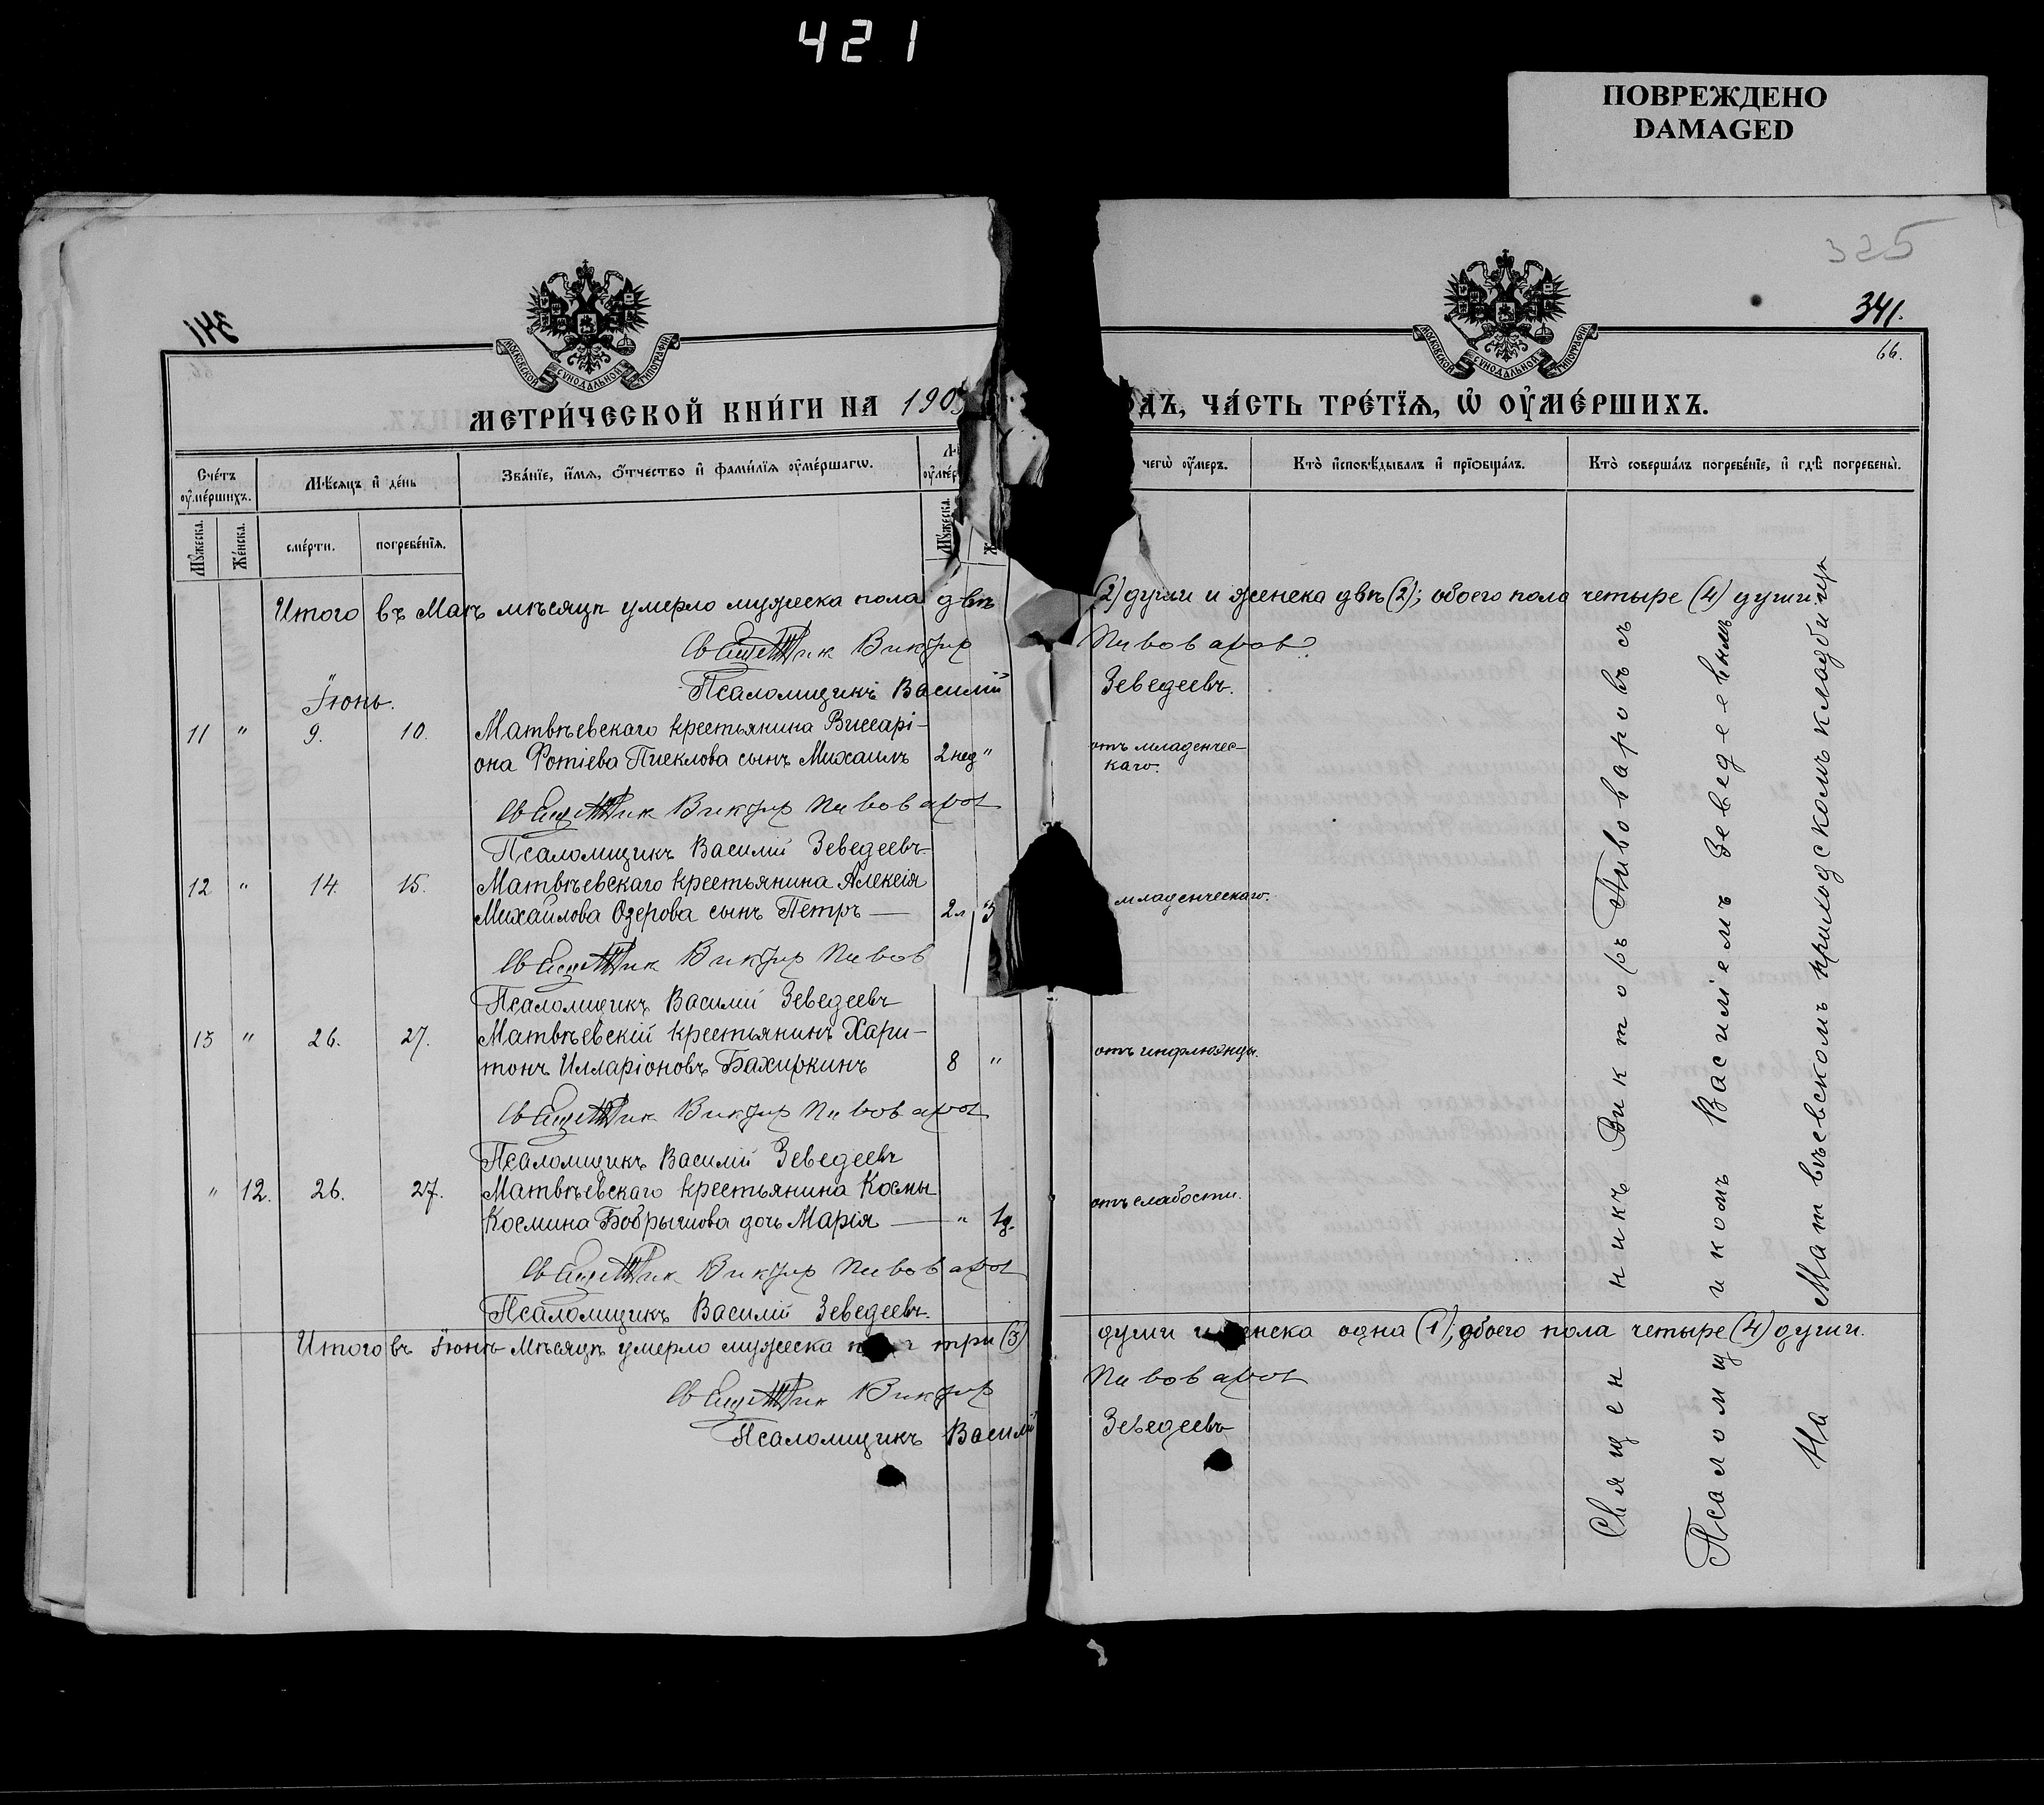 421
ПОВРЕЖДЕНО
DAMAGED
325
341.
66.
МОСКОВСКОЙ СѴНОДАЛЬНОЙ ТИПОГРАФІИ
МОСКОВСКОЙ СѴНОДАЛЬНОЙ ТИПОГРАФІИ
МЕТРИ́ЧЕСКОЙ КНИ́ГИ НА 190
ОДЪ, ЧА́СТЬ ТРЕ́ТЇѦ, Ѽ ОУ҆МЕ́РШИХЪ.
Сче́тъ оу҆ме́ршихъ.
Мѣ́сѧцъ и҆ де́нь
Зва́нїе, и҆́мѧ, ѻ҆́тчество и҆ фами́лїѧ оу҆ме́ршагѡ.
чегѡ̀ оу҆́меръ.
Кто̀ и҆сповѣ́дывалъ и҆ прїѡбща́лъ.
Кто̀ соверша́лъ погребе́нїе, и҆ гдѣ̀ погребены̀.
Мꙋ́жеска.
Же́нска.
сме́рти.
погребе́нїѧ.
Мꙋ́жеска.
Итого въ Маѣ мѣсяцѣ умерло мужеска пола двѣ (2) души и женска двѣ (2); обоего пола четыре (4) души.
Священник Виктор Пивоваров
Псаломщикъ Василій Зеведеевъ.
Іюнь.
11 " 9. 10. Матвѣевскаго крестьянина Виссарі-
она Фотіева Пчеклова сынъ Михаилъ 2 нед " отъ младенчес-
каго.
Священник Виктор Пивоваров
Псаломщикъ Василій Зеведеевъ
12 " 14. 15. Матвѣевскаго крестьянина Алексія
Михайлова Озерова сынъ Петръ — 2 л младенческаго.
Священник Виктор Пивов
Псаломщикъ Василій Зеведеевъ
13 " 26. 27. Матвѣевскій крестьянинъ Хари-
тонъ Илларіоновъ Бахиркинъ 8 " отъ инфлюэнцы.
Священник Виктор Пивоваров
Псаломщикъ Василій Зеведеевъ
" 12. 26. 27. Матвѣевскаго крестьянина Космы
Космина Бобрышова дочь Марія — " 1 д. отъ слабости.
Священник Виктор Пивоваров
Псаломщикъ Василій Зеведеевъ.
Итого въ Іюнѣ мѣсяцѣ умерло мужеска три (3) души и женска одна (1); обоего пола четыре (4) души.
Священник Виктор Пивоваров
Псаломщикъ Василій Зеведеевъ
Священникъ Викторъ Пивоваровъ съ
Псаломщикомъ Василіемъ Зеведеевымъ
На Матвѣевскомъ приходскомъ кладбищѣ